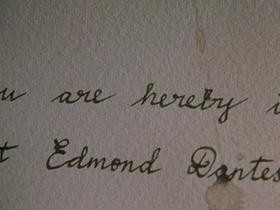 u are hereby i
t Edmond Dantes